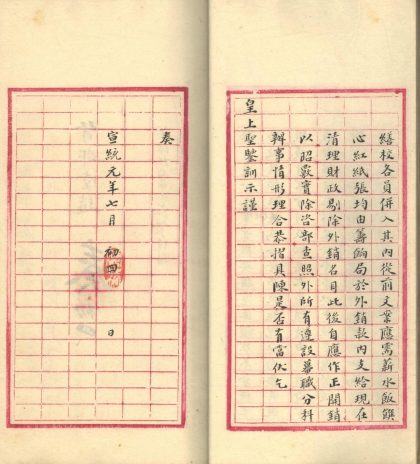 繕校各員併入其內從前文案應需薪水飯饌
心紅紙張均由籌餉局於外銷款內支給現在
清理財政剔除外銷名目此後自應作正開銷
以昭覈實除咨部查照外所有遵設幕職分科
辦事情形理合恭摺具陳是否有當伏乞
皇上聖鑒訓示謹
奏
宣統元年七月初四日